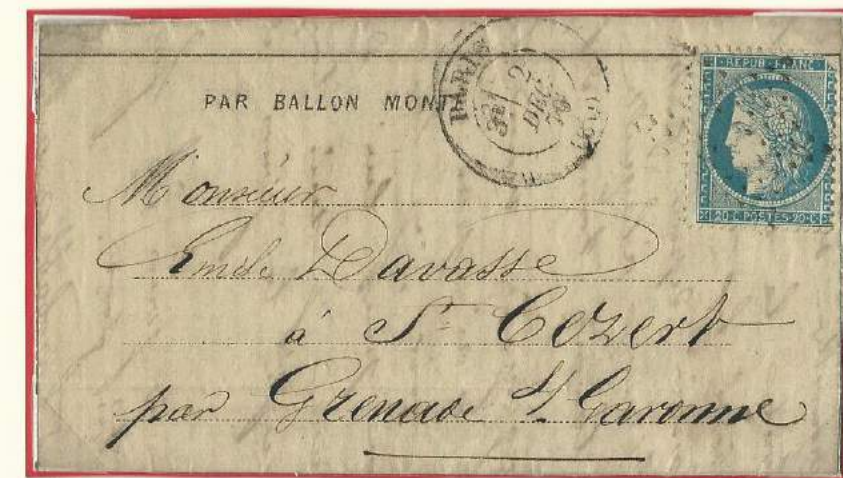 PAR BALLON MONTÉ
PARIS
2
DEC.
70
(60)
REPUB·FRANC
20·C·POSTES·20·C
Monsieur
Emile Davasse
à St Cezert
par Grenade S/ Garonne